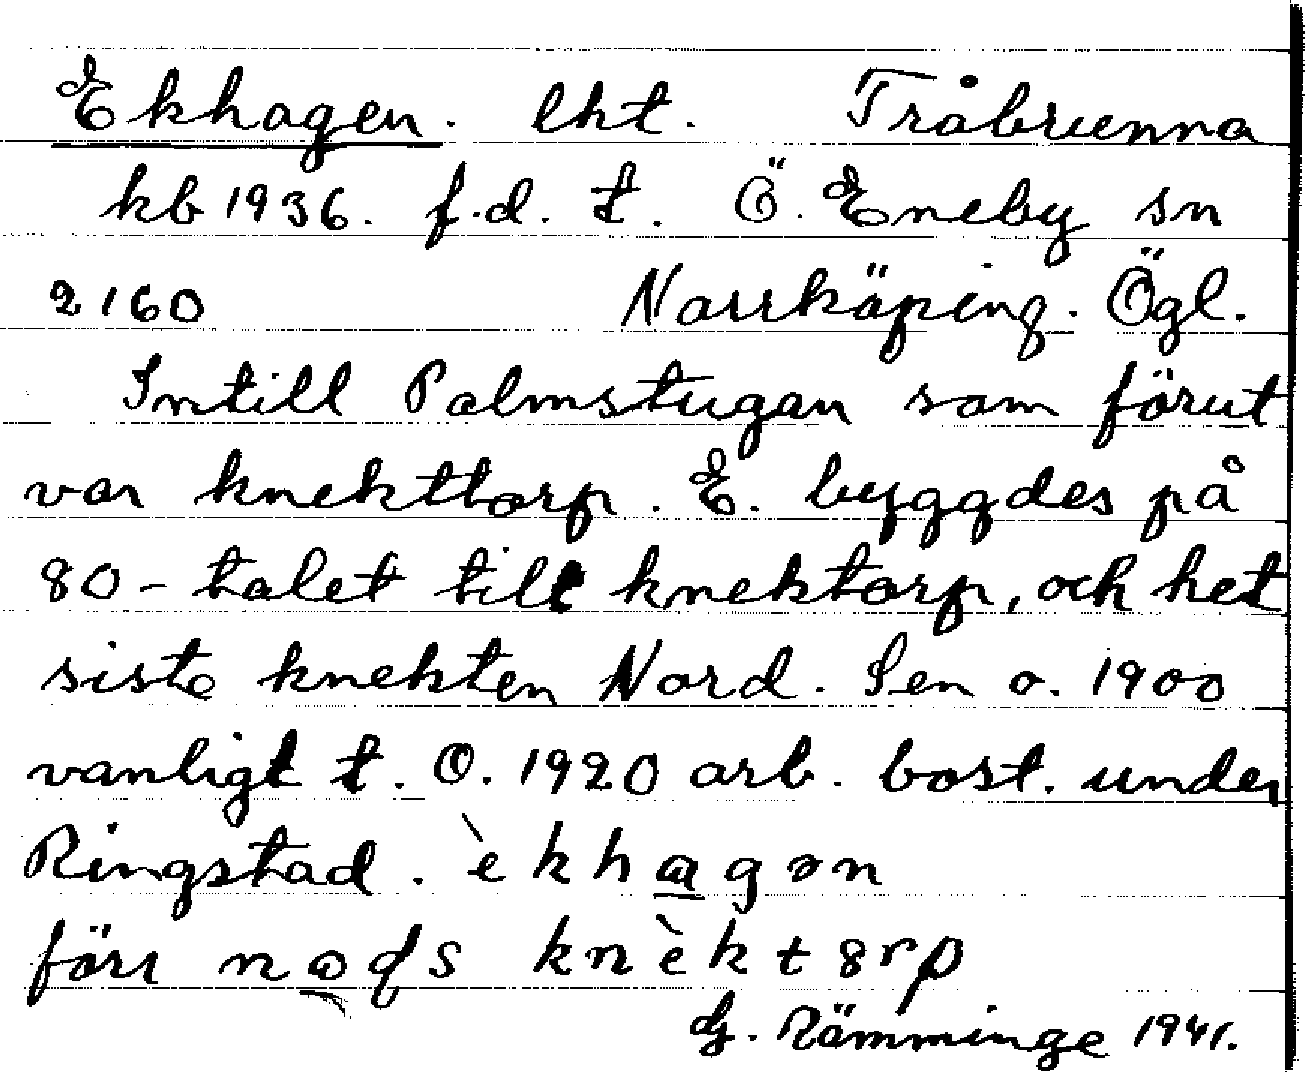 Ekhagen. lht. Tråbrunna
kb 1936. f.d. t. Ö. Eneby sn
2160 Norrköping. Ögl.
Intill Palmstugan som förut
var knekttorp. E. byggdes på
80-talet till knektorp, och het
siste knekten Nord. Sen o. 1900
vanligt t. O. 1920 arb. bost. under
Ringstad. èkhagən
förr knèkt
G. Rämminge 1941.